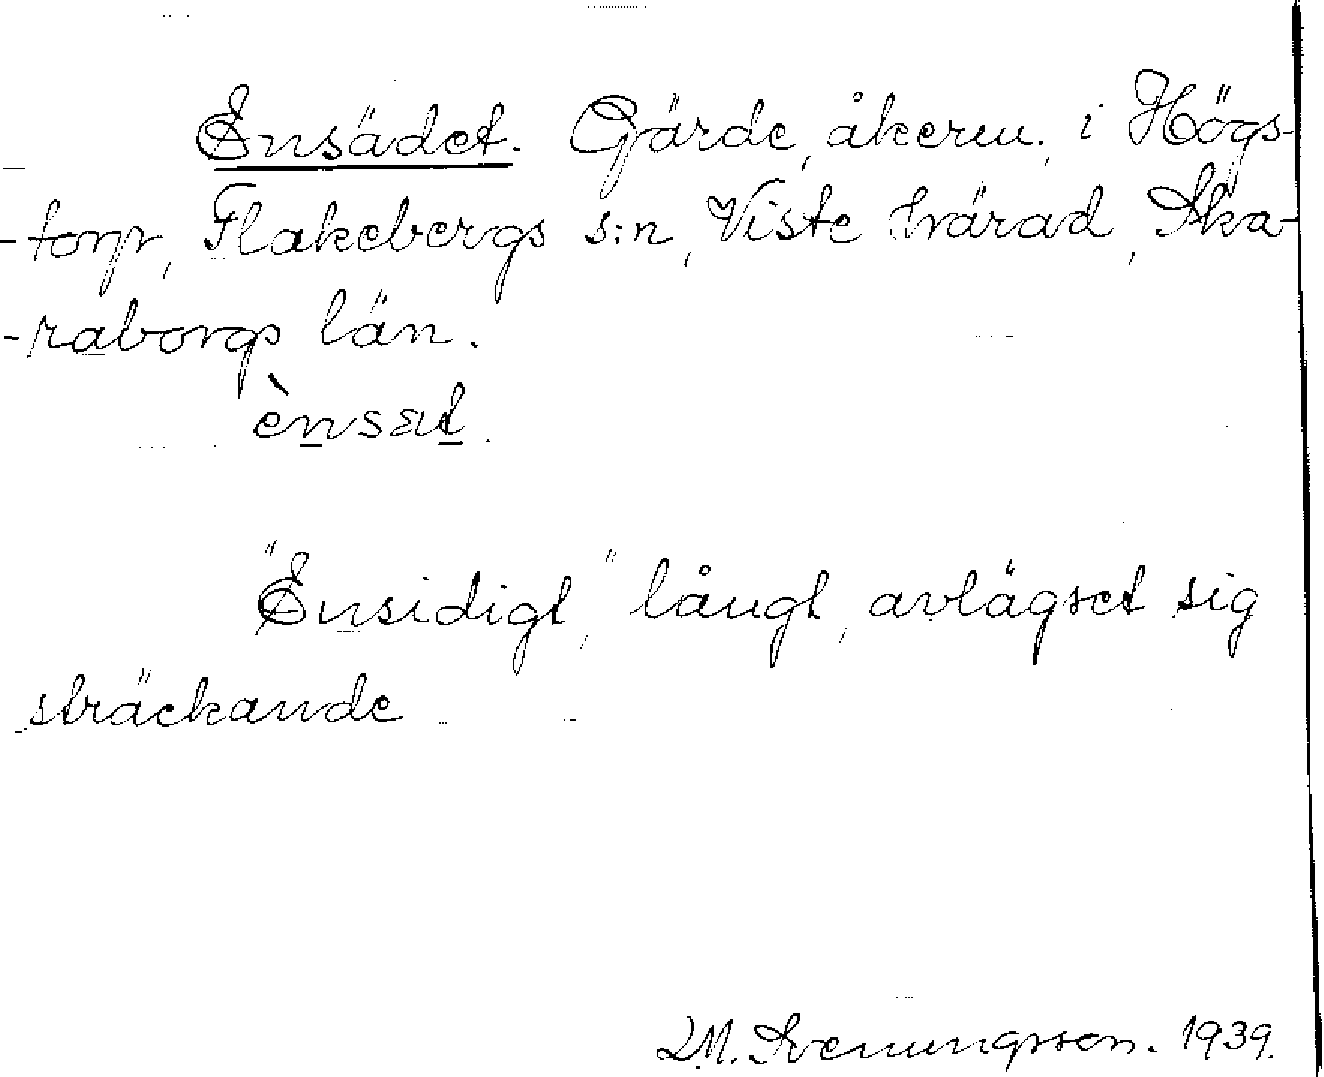 Ensädet. Gärde, åkerm., i Högs-
-torp, Flakebergs s:n, Viste härad, Ska-
-raborgs län.
ènsæt.
"Ensidigt," långt, avlägset sig
sträckande
M. Svenungsson. 1939.